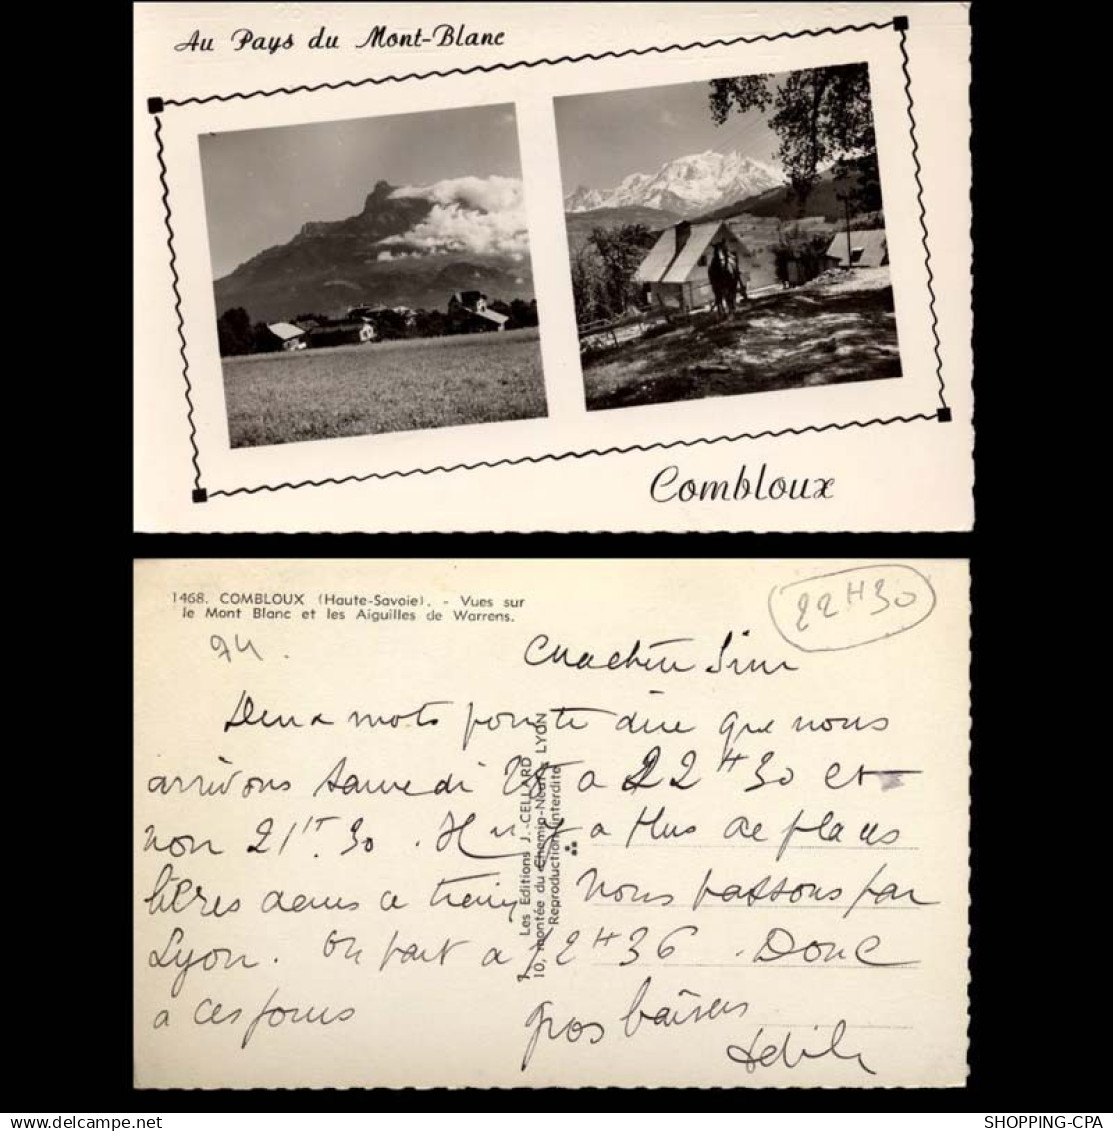 Au Pays du Mont-Blanc
Combloux
1468. COMBLOUX (Haute-Savoie). - Vues sur
le Mont Blanc et les Aiguilles de Warrens.
22 H 30
74.
Deux mots pour te dire que nous
arrivons samedi 28 a 22 H 30 et
non 21 H. 30. Il n'y a plus de places
libres dans ce train, Nous passons par
Lyon. On part a 12 H 36. Donc
a ces jours
gros baisers
J. CELLARD
Les Editions J. CELLARD
10, montée du Chemin-Neuf - LYON
Reproduction interdite
SHOPPING-CPA